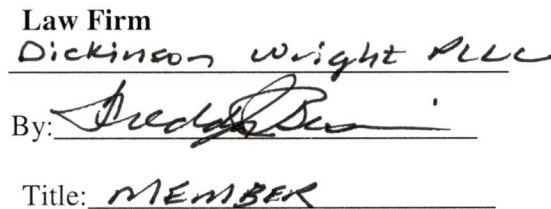 Law Firm
Dickinson Wright PLLC
By:
Title: MEMBER